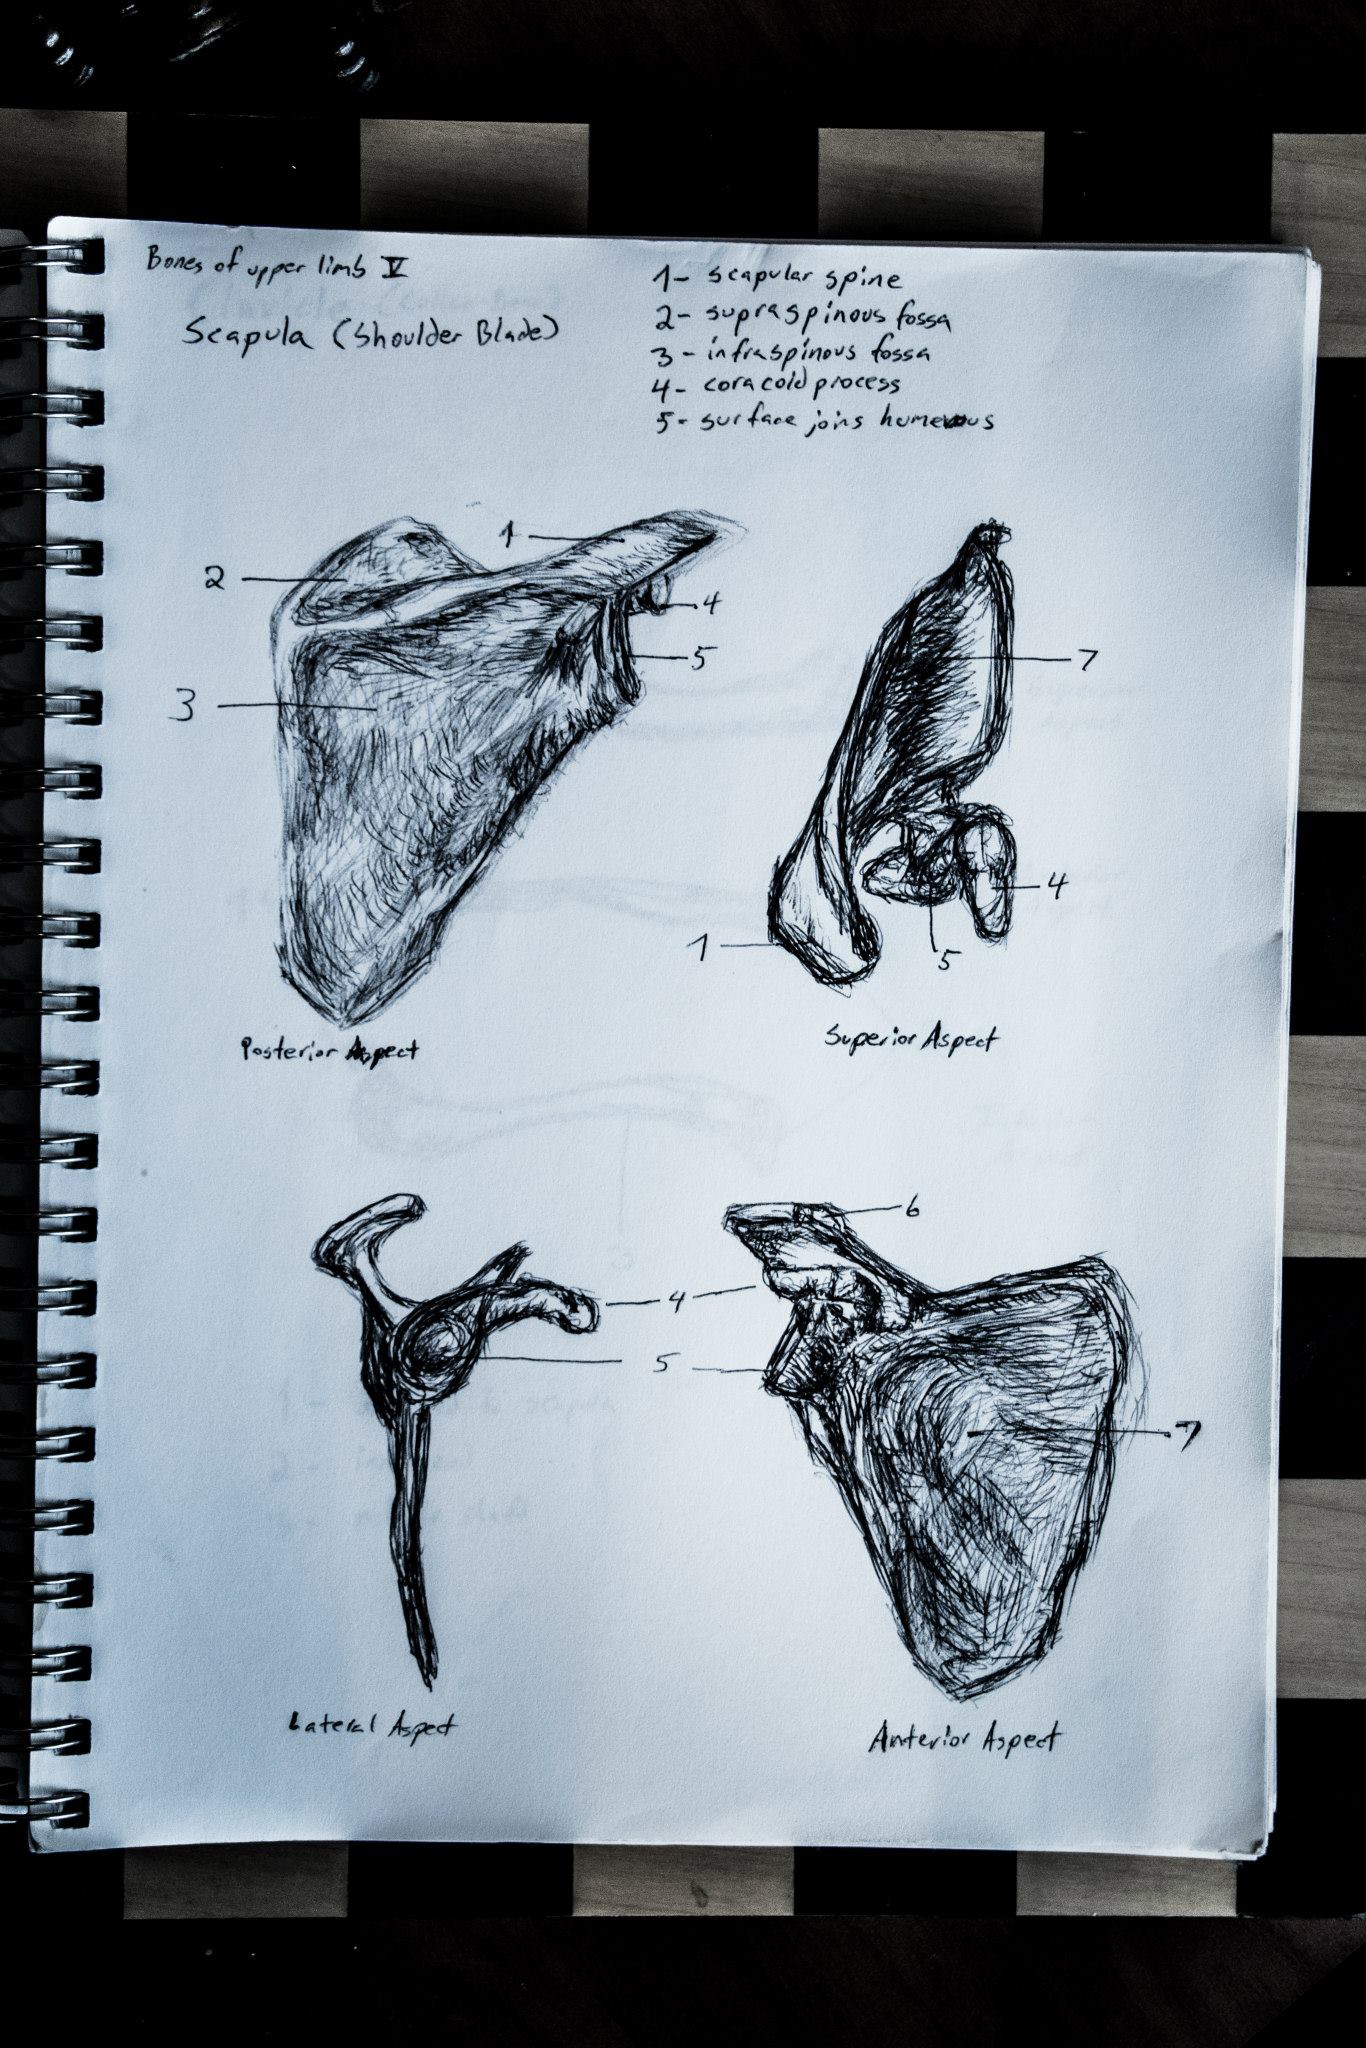 Bones of upper limb V
Scapula (Shoulder Blade)
1- scapular spine
2- supraspinous fossa
3- infraspinous fossa
4- coracoid process
5- surface joins humerous
1
2
4
5
3
7
4
1
5
Posterior Aspect
Superior Aspect
6
4
5
7
Lateral Aspect
Anterior Aspect